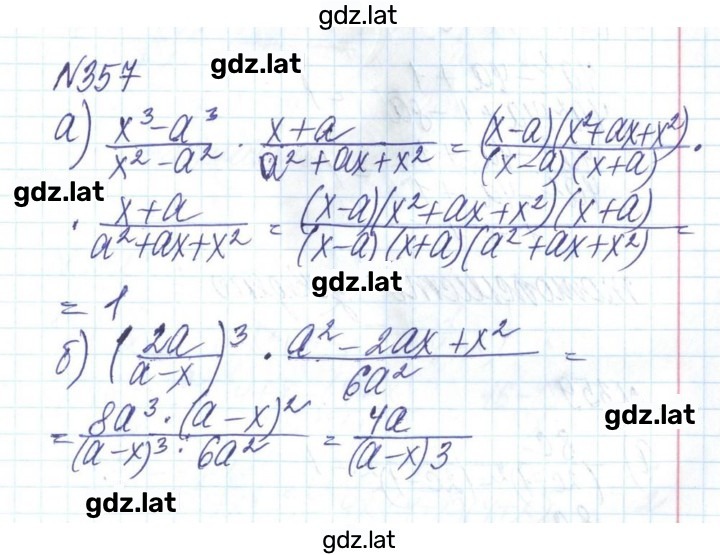 gdz.lat
№357
gdz.lat
а) (x³-a³)/(x²-a²) · (x+a)/(a²+ax+x²) = ((x-a)(x²+ax+x²))/((x-a)(x+a)) ·
gdz.lat
· (x+a)/(a²+ax+x²) = ((x-a)(x²+ax+x²)(x+a))/((x-a)(x+a)(a²+ax+x²)) =
gdz.lat
= 1
б) (2a/(a-x))³ · (a²-2ax+x²)/6a² =
= (8a³·(a-x)²)/((a-x)³·6a²) = 4a/((a-x)3)
gdz.lat
gdz.lat
gdz.lat